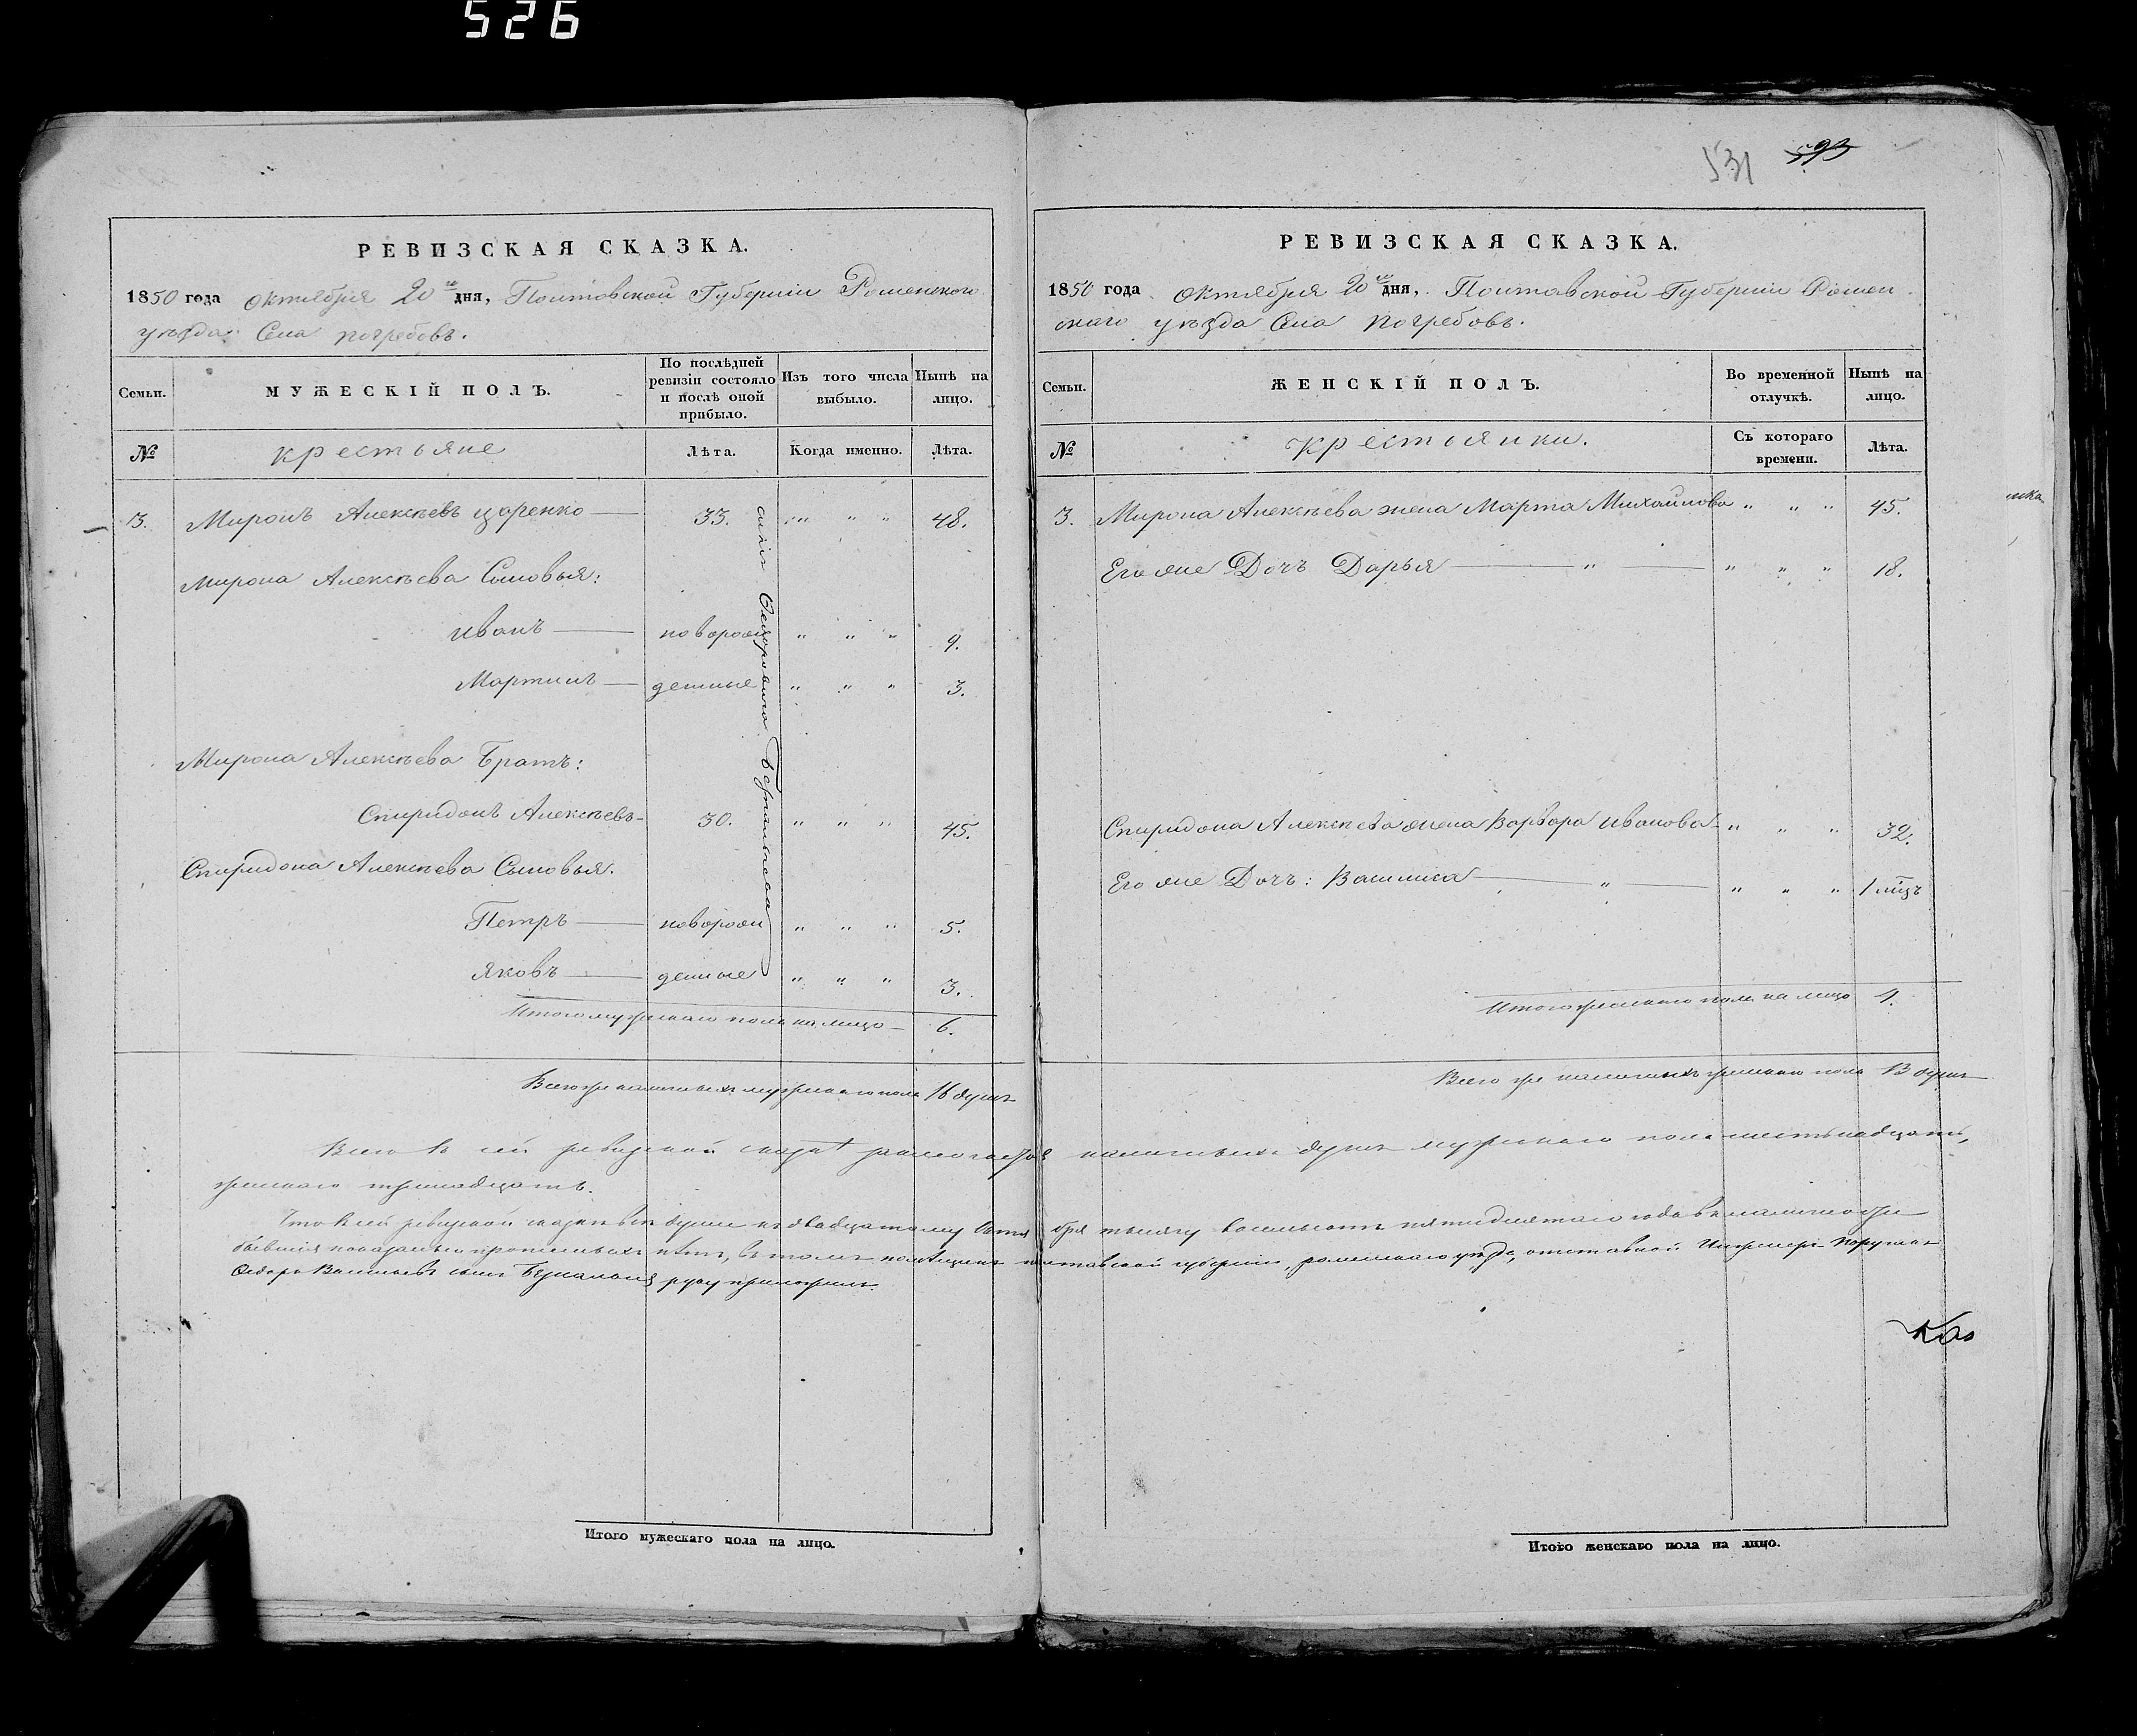 526
РЕВИЗСКАЯ СКАЗКА.
1850 года Октября 20го дня, Полтавской Губерніи Роменского
уѣзда Села Погребовъ.
Семьи.
МУЖЕСКІЙ ПОЛЪ.
По послѣдней ревизіи состояло и послѣ оной прибыло.
Изъ того числа выбыло.
Нынѣ на лицо.
№ крестьяне Лѣта. Когда именно. Лѣта.
3. Миронъ Алексѣевъ Царенко 33. " " " 48.
Мирона Алексѣева Сыновья:
Иванъ новорож " " " 9.
Мартинъ денные " " " 3.
Мирона Алексѣева Братъ:
Спиридонъ Алексѣевъ 30. " " " 45.
Спиридона Алексѣева Сыновья.
Петръ новорож " " " 5.
Яковъ денные " " " 3.
Итого мужескаго пола на лицо 6.
Всего же наличныхъ мужескаго пола 16 душъ
531 593
РЕВИЗСКАЯ СКАЗКА.
1850 года Октября 20го дня, Полтавской Губерніи Ромен
скаго уѣзда Села Погребовъ.
Семьи.
ЖЕНСКІЙ ПОЛЪ.
Во временной отлучкѣ.
Нынѣ на лицо.
№ Крестьянки. Съ котораго времени. Лѣта.
3. Мирона Алексѣева жена Марта Михайлова " " " 45.
Его же Дочъ Дарья " " " " 18.
Спиридона Алексѣева жена Варвара Иванова " " " 32.
Его же Дочъ: Василиса " " " " 1 мѣц
Итого женскаго пола на лицо 4.
Всего же наличныхъ женскаго пола 13 душъ
Всего в сей ревизской сказкѣ наличныхъ душъ мужескаго пола шестьнадцать,
женскаго тринадцать.
Что всей ревизской сказкѣ всѣ души къ двадцатому Октября тысячу восемьсотъ пятидесятаго года въ наличности
бывшія показаны и прописныхъ нѣтъ, въ томъ помѣщикъ полтавской губерніи, роменскаго уѣзда, отставной Инженеръ Поручикъ
Федоръ Васильевъ сынъ руку приложилъ.
Итого мужескаго пола на лицо.
Итого женскаго пола на лицо.